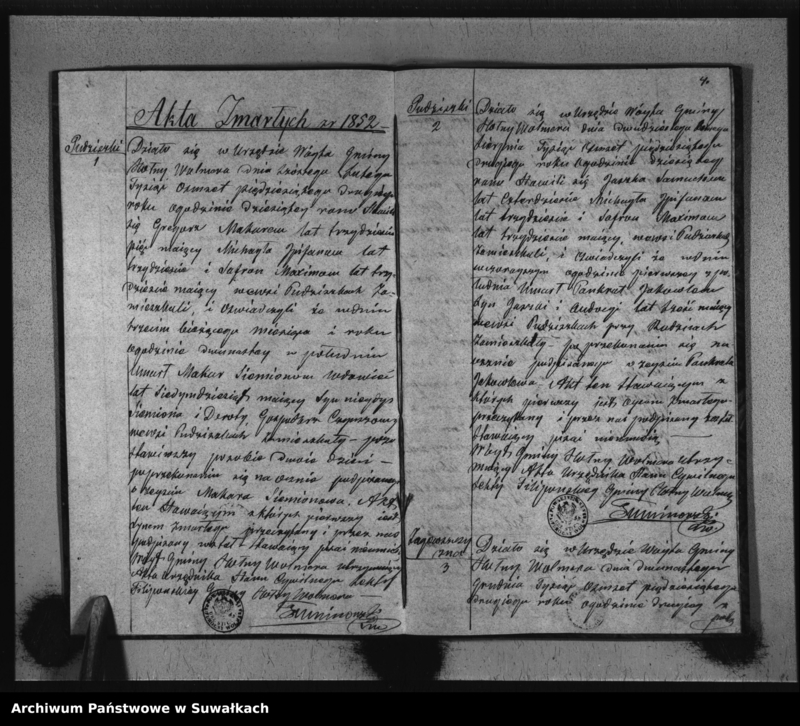 Akta Zmarłych zr 1852
Pudziszki
1
Działo się w Urzędzie Wójta Gminy
Hołny Wolmera dnia szóstego Lutego
Tysiąc Osmset pięćdziesiątego drugiego
roku ogodzinie dziesiątey rano Stawili
się Gregorz Makarow lat trzydzieści
pięć maiący Michayła Jpifanow lat
trzydzieści i Safron Maximow lat trzy-
dzieście maiący wewsi Pudziszkach Za-
mieszkali, i oswiadczyli że wdniu
trzecim bieżącego miesiąca i roku
ogodzinie dwunastey w południe
Umarł Makar Siemionow Wdowiec
lat Siedymdziesiąt maiący Syn nieżyią
Siemiona i Doroty, Gospodarz Czynszowy
wewsi Pudziszkach zamieszkały – pozo
stawiwszy posobie dwoie dzieci –
poprzekonaniu się naocznie podpisanego
o zeyściu Makara Siemionowa. Akt
ten Stawaiącym zktórych pierwszy iest
Synem zmarłego przeczytany i przez nas
podpisany został stawaiący pisać nieumieią
Wóyt Gminy Hołny Wolmera utrzymuiący
Akta Urzędnika Stanu Cywilnego Sekty
Filiponskiey Gminy Hołny Wolmera –
4.
Pudziszki
2
Działo się w Urzędzie Wóyta Gminy
Hołny Wolmera dnia dwudziestego
Sierpnia Tysiąc Osmset pięćdziesiątego
drugiego roku ogodzinie dziesiątey
rano Stawili się
lat Czterdzieście Michayła Jpifanow
lat trzydzieście i Safron Maximow
lat trzydzieście maiący, wewsi Pudziszkach
Zamieszkali, i oswiadczyli że wdniu
wczorayszym ogodzinie pierwszey zpo
łudnia Umarł Pankrat Jakowlow
Syn i lat sześć maiący
wewsi Pudziszkach przy Rodzicach
Zamieszkały – poprzekonaniu się na
ocznie podpisanego o zeyściu Pankrata
Jakowlowa – Akt ten stawaiącym z
których pierwszy iest Oycem zmarłego
przeczytany i przez nas podpisany został
stawaiący pisać nieumieią –
Wóyt Gminy Hołny Wolmera utrzy-
muiący Akta Urzędnika Stanu Cywilnego
Sekty Filiponskiey Gminy Hołny Wolmera
3
Działo się w Urzędzie Wóyta Gminy
Hołny Wolmera dnia dwunastego
Grudnia Tysiąc Osmset pięćdziesiątego
drugiego roku ogodzinie drugiey z
połu
Archiwum Państwowe w Suwałkach